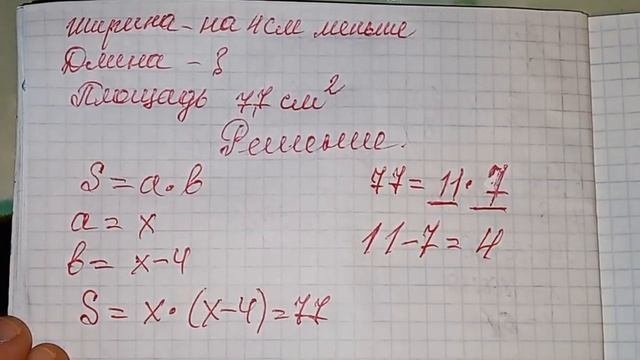 ширина - на 4 см меньше
Длина - ?
Площадь 77 см²
Решение.
S = a · b
a = x
b = x - 4
S = x · (x - 4) = 77
77 = 11 · 7
11 - 7 = 4